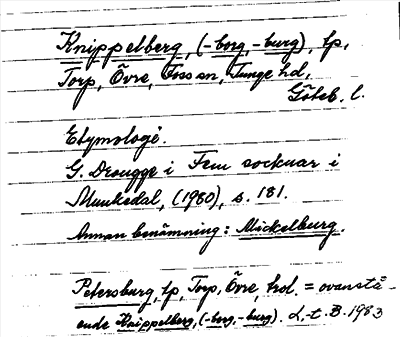 Knippelberg, (-borg, -burg), lp,
Torp, Övre, Foss sn, Tunge hd,
Göteb. l.
Etymologi.
G. Drougge i Fem socknar i
Munkedal, (1980), s. 181.
Annan benämning: Mickelburg.
Petersburg, lp, Torp, Övre, hd. = ovanstå-
ende Knippelberg, (-borg, -burg). L-t. B. 1983